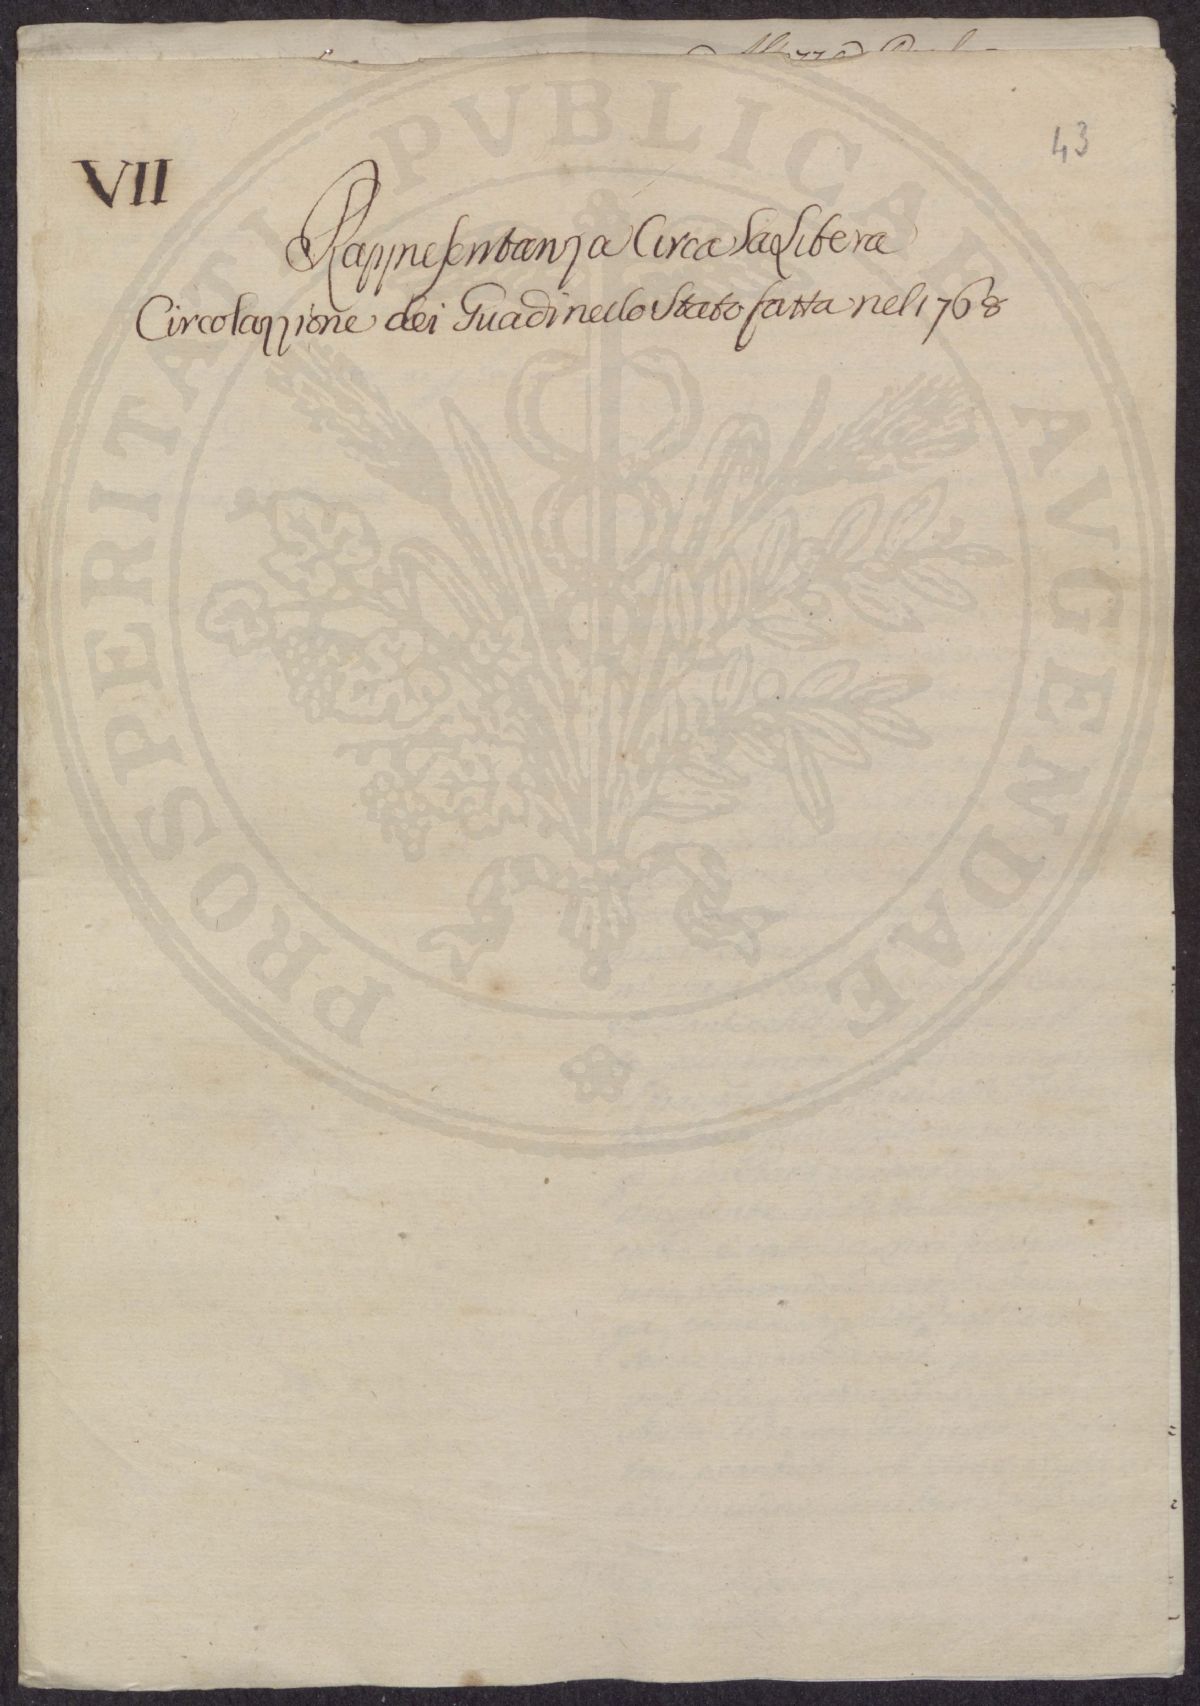 43
VII
Rappresentanza Circa la Libera
Circolazzione dei Guadi nello Stato fatta nel 1768
PROSPERITATI PVBLICAE AVGENDAE